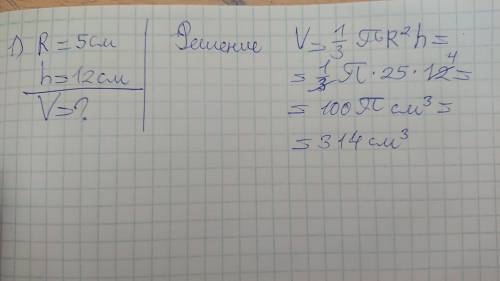 1) R = 5см
h = 12см
V = ?
Решение
V = 1/3 πR²h =
= 1/3 π · 25 · 12 4 =
= 100π см³ =
= 314 см³